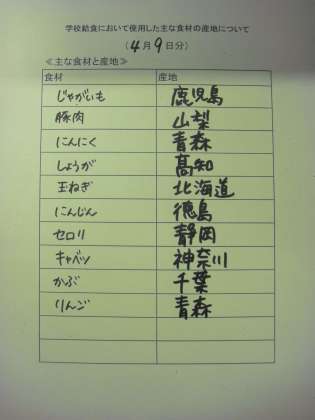 学校給食において使用した主な食材の産地について
(4月9日分)
≪主な食材と産地≫
食材 産地
じゃがいも 鹿児島
豚肉 山梨
にんにく 青森
しょうが 高知
玉ねぎ 北海道
にんじん 徳島
セロリ 静岡
キャベツ 神奈川
かぶ 千葉
りんご 青森